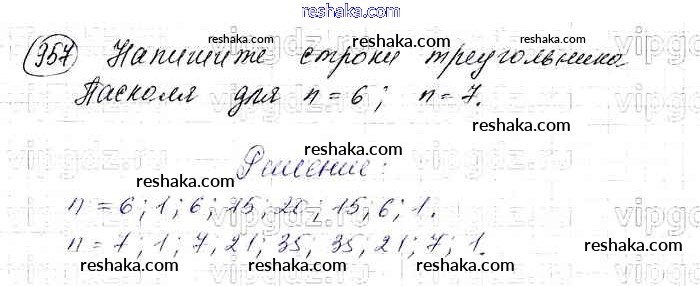 reshaka.com
957 Напишите строки треугольника
Паскаля для n = 6; n = 7.
reshaka.com reshaka.com reshaka.com
Решение:
reshaka.com reshaka.com reshaka.com
n = 6; 1; 6; 15; 20; 15; 6; 1.
n = 7; 1; 7, 21; 35, 35, 21; 7; 1.
reshaka.com reshaka.com reshaka.com
reshaka.com